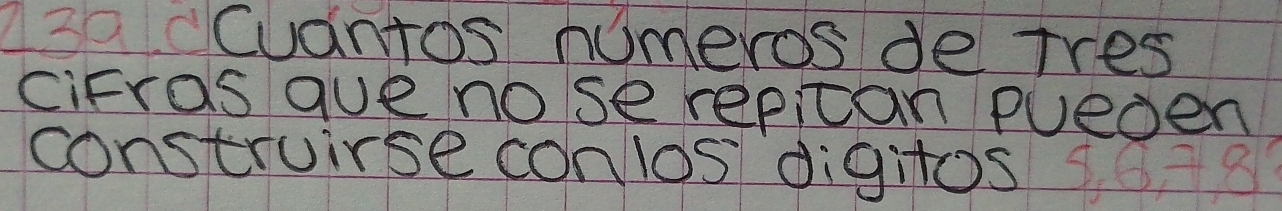 23a. ¿Cuántos números de Tres
cifras que no se repitan pueden
construirse con los digitos 5,6,7,8?